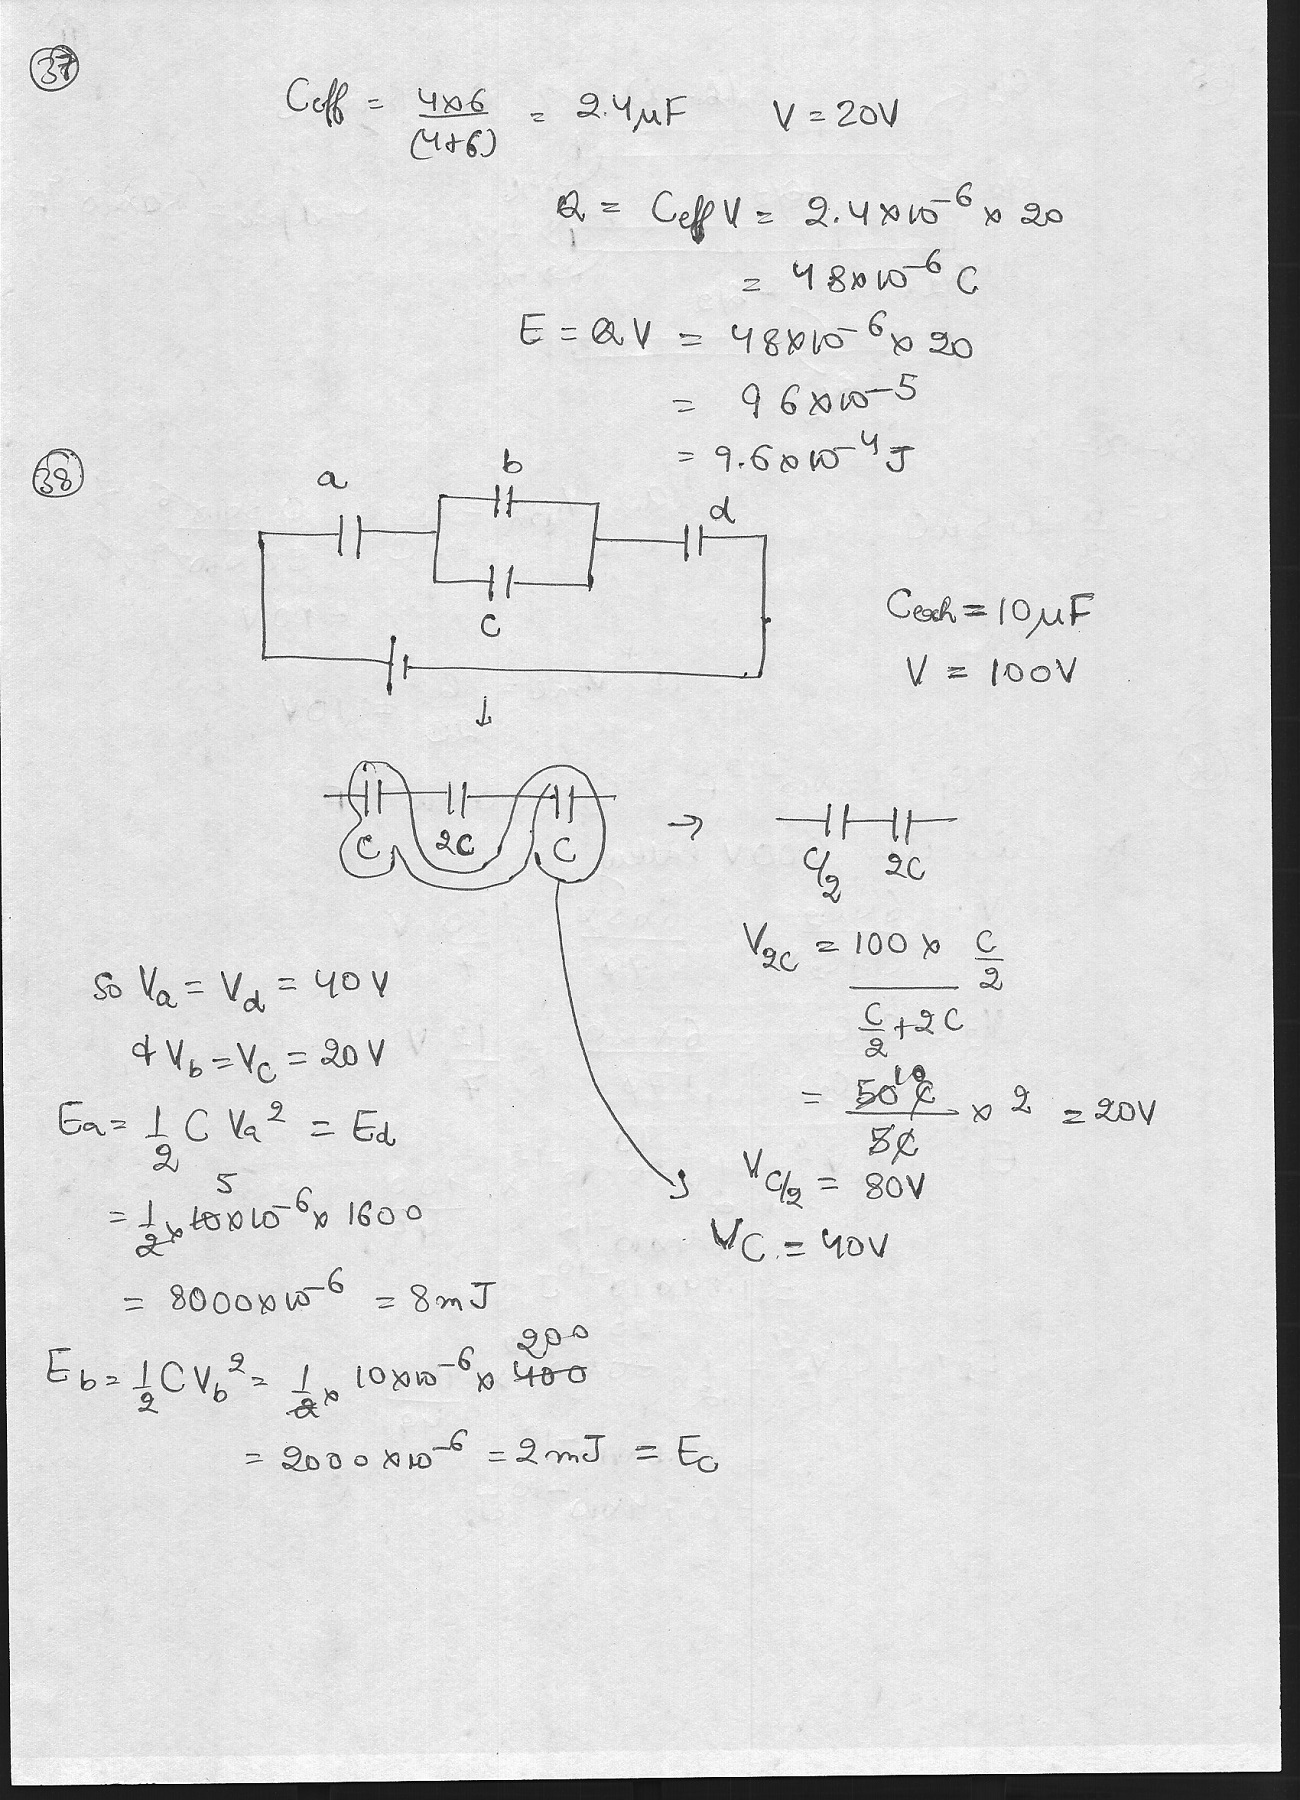 37
Ceff = 4×6/(4+6) = 2.4μF V = 20V
Q = Ceff V = 2.4×10^-6 × 20
= 48×10^-6 C
E = QV = 48×10^-6 × 20
= 96×10^-5
= 9.6×10^-4 J
38
a b d
c
Ceach = 10μF
V = 100V
↓
C 2C C → C/2 2C
V2C = 100 × C/2 / (C/2 + 2C)
= 50C/5C × 2 = 20V
10
VC/2 = 80V
VC = 40V
So Va = Vd = 40V
& Vb = Vc = 20V
Ea = 1/2 C Va^2 = Ed
5
= 1/2 × 10×10^-6 × 1600
= 8000×10^-6 = 8mJ
200
Eb = 1/2 C Vb^2 = 1/2 × 10×10^-6 × 400
= 2000×10^-6 = 2mJ = Ec